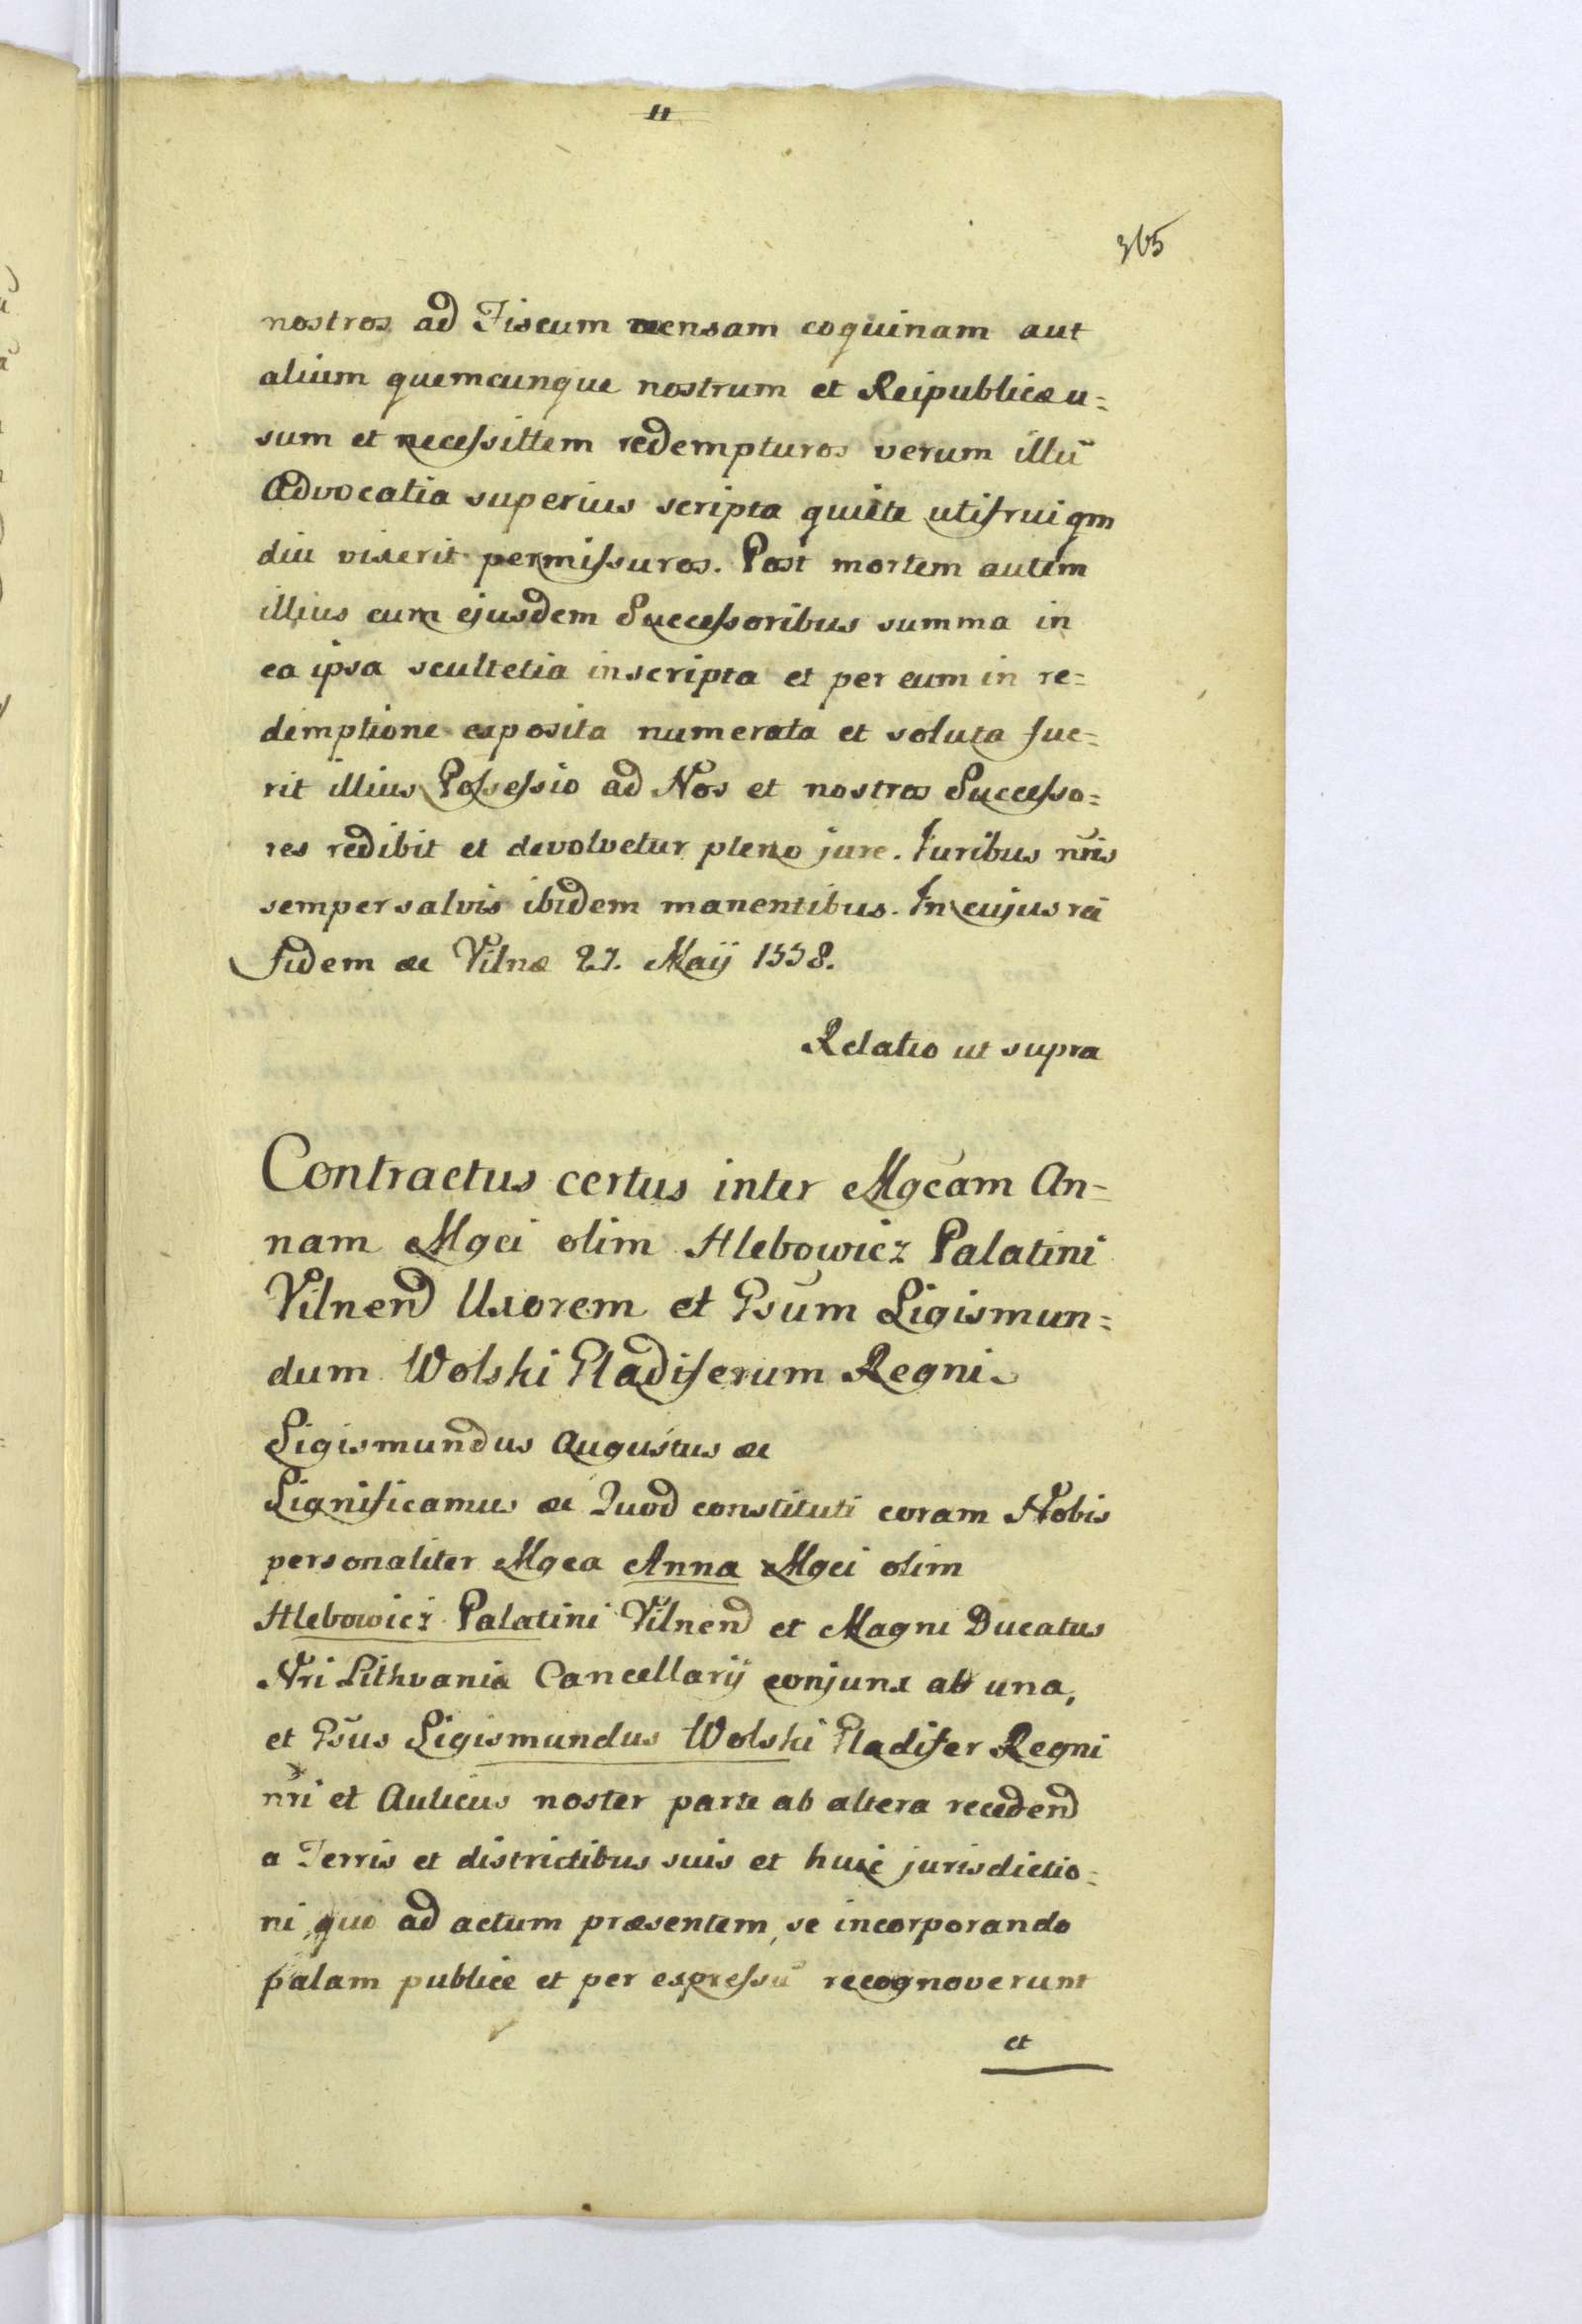 11
365
nostros ad Fiscum mensam coquinam aut
alium quemcunque nostrum et Reipublicæ u=
sum et necessittem redempturos verum illū
Advocatia superius scripta quiete utifrui qm
diu vixerit permissuros. Post mortem autem
illius cum ejusdem Successoribus summa in
ea ipsa scultetia inscripta et per eum in re=
demptione exposita numerata et soluta fue=
rit illius Possessio ad Nos et nostros Successo=
res redibit et devolvetur pleno jure. Juribus nr̃is
semper salvis ibidem manentibus. In cujus rei
fidem &c Vilnæ 27. Maij 1558.
Relatio ut supra
Contractus certus inter Mgcam An=
nam Mgci olim Hlebowicz Palatini
Vilnend Uxorem et Gsūm Sigismun=
dum Wolski Gladiferum Regni.
Sigismundus Augustus &c
Significamus &c Quod constituti coram Nobis
personaliter Mgca Anna Mgci olim
Hlebowicz Palatini Vilnend et Magni Ducatus
Nri Lithvania Cancellarij conjunx ab una,
et Gsūs Sigismundus Wolski Gladifer Regni
nr̃i et Aulicus noster parte ab altera recedend
a Terris et districtibus suis et huic jurisdictio=
ni quo ad actum præsentem, se incorporando
palam publice et per expressū recognoverunt
et